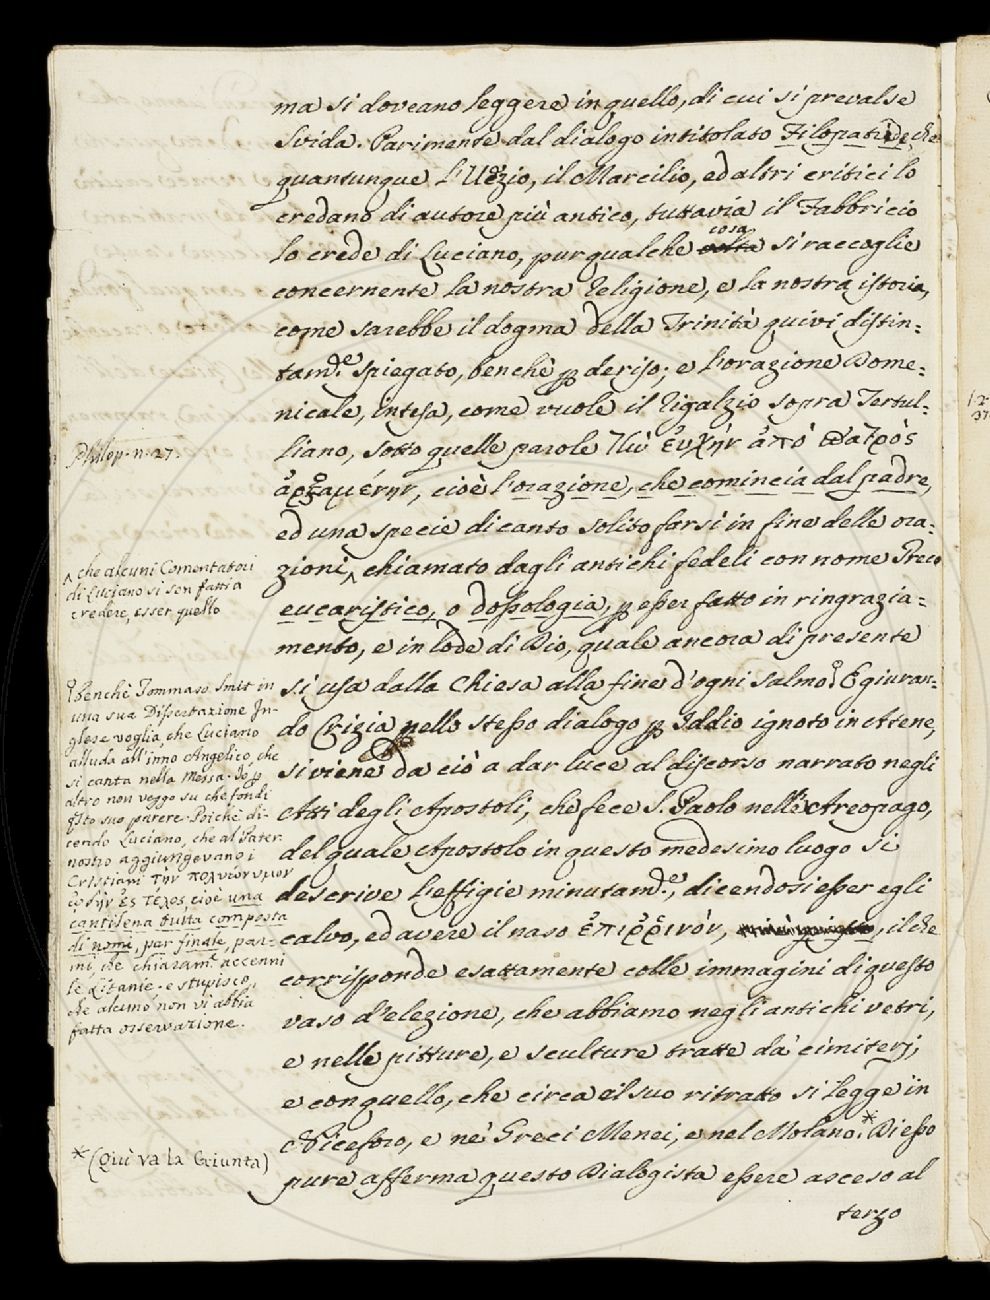 ma si doveano leggere in quello, di cui si prevalse
Svida. Parimente dal dialogo intitolato Filopatride, che
quantunque l'Uezio, il Marcilio, ed altri critici lo
credano di autore più antico, tuttavia il Fabbricio
lo crede di Luciano, pur qualche cosa si raccoglie
concernente la nostra Religione, e la nostra istoria,
come sarebbe il dogma della Trinità quivi distin=
tam.te spiegato, benchè p deriso; e l'orazione Dome=
nicale, intesa, come vuole il Rigalzio sopra Tertul=
liano, sotto quelle parole Τὴν ἐυχὴν ἀπὸ πατρὸς
ἀρξαμένην, cioè l'orazione, che comincia dal padre,
ed una specie di canto solito farsi in fine delle ora=
zioni, chiamato dagli antichi fedeli con nome Greco
eucaristico, o dossologia, p esser fatto in ringrazia=
mento, e in lode di Dio, quale ancora di presente
si usa dalla Chiesa alla fine d'ogni salmo. E giuran=
do Crizia nello stesso dialogo p Iddio ignoto in Atene,
si viene da ciò a dar luce al discorso narrato negli
Atti degli Apostoli, che fece S. Paolo nell'Areopago,
del quale Apostolo in questo medesimo luogo si
descrive l'effigie minutam.te, dicendosi esser egli
calvo, ed avere il naso ἐπίῤῥινον, il che
corrisponde esattamente colle immagini di questo
vaso d'elezione, che abbiamo negli antichi vetri,
e nelle pitture, e sculture tratte da' cimiterj,
e con quello, che circa al suo ritratto si legge in
Niceforo, e ne' Greci Menei, e nel Molano.* Di esso
pure afferma questo Dialogista essere asceso al
terzo
Philop. n. 27.
che alcuni Comentatori
di Luciano si son fatti a
credere, esser quello
Benchè Tommaso Smit in
una sua Dissertazione In-
glese voglia, che Luciano
alluda all'inno Angelico, che
si canta nella Messa. Io p
altro non veggo su che fondi
q.sto suo parere. Poichè di-
cendo Luciano, che al Pater
nostro aggiungevano i
Cristiani τὴν πολυώνυμον
ᾠδὴν ἐς τέλος, cioè una
cantilena tutta composta
di nomi, par finale, par-
mi, che chiaram.te accenni
le Litanie. e stupisco,
che alcuno non vi abbia
fatta osservazione.
* (Quì và la Giunta)